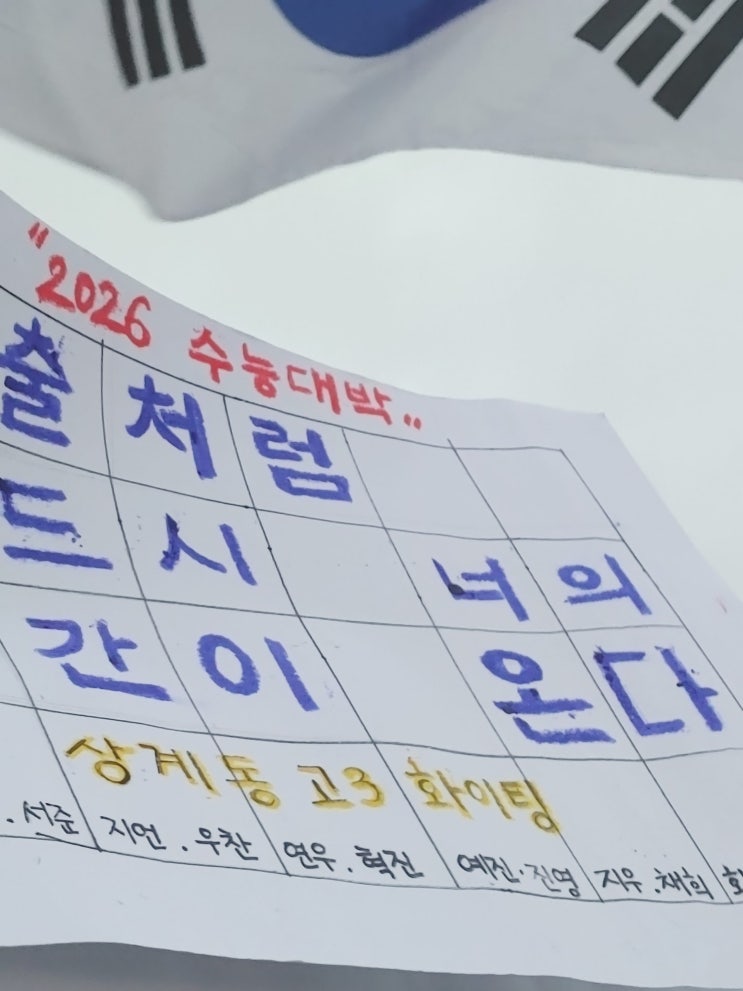 "2026 수능대박"
출처럼
드시 너의
간이 온다
상계동 고3 화이팅
. 서준 지언 . 우찬 연우 . 혁진 예진 · 진영 지우 . 채희